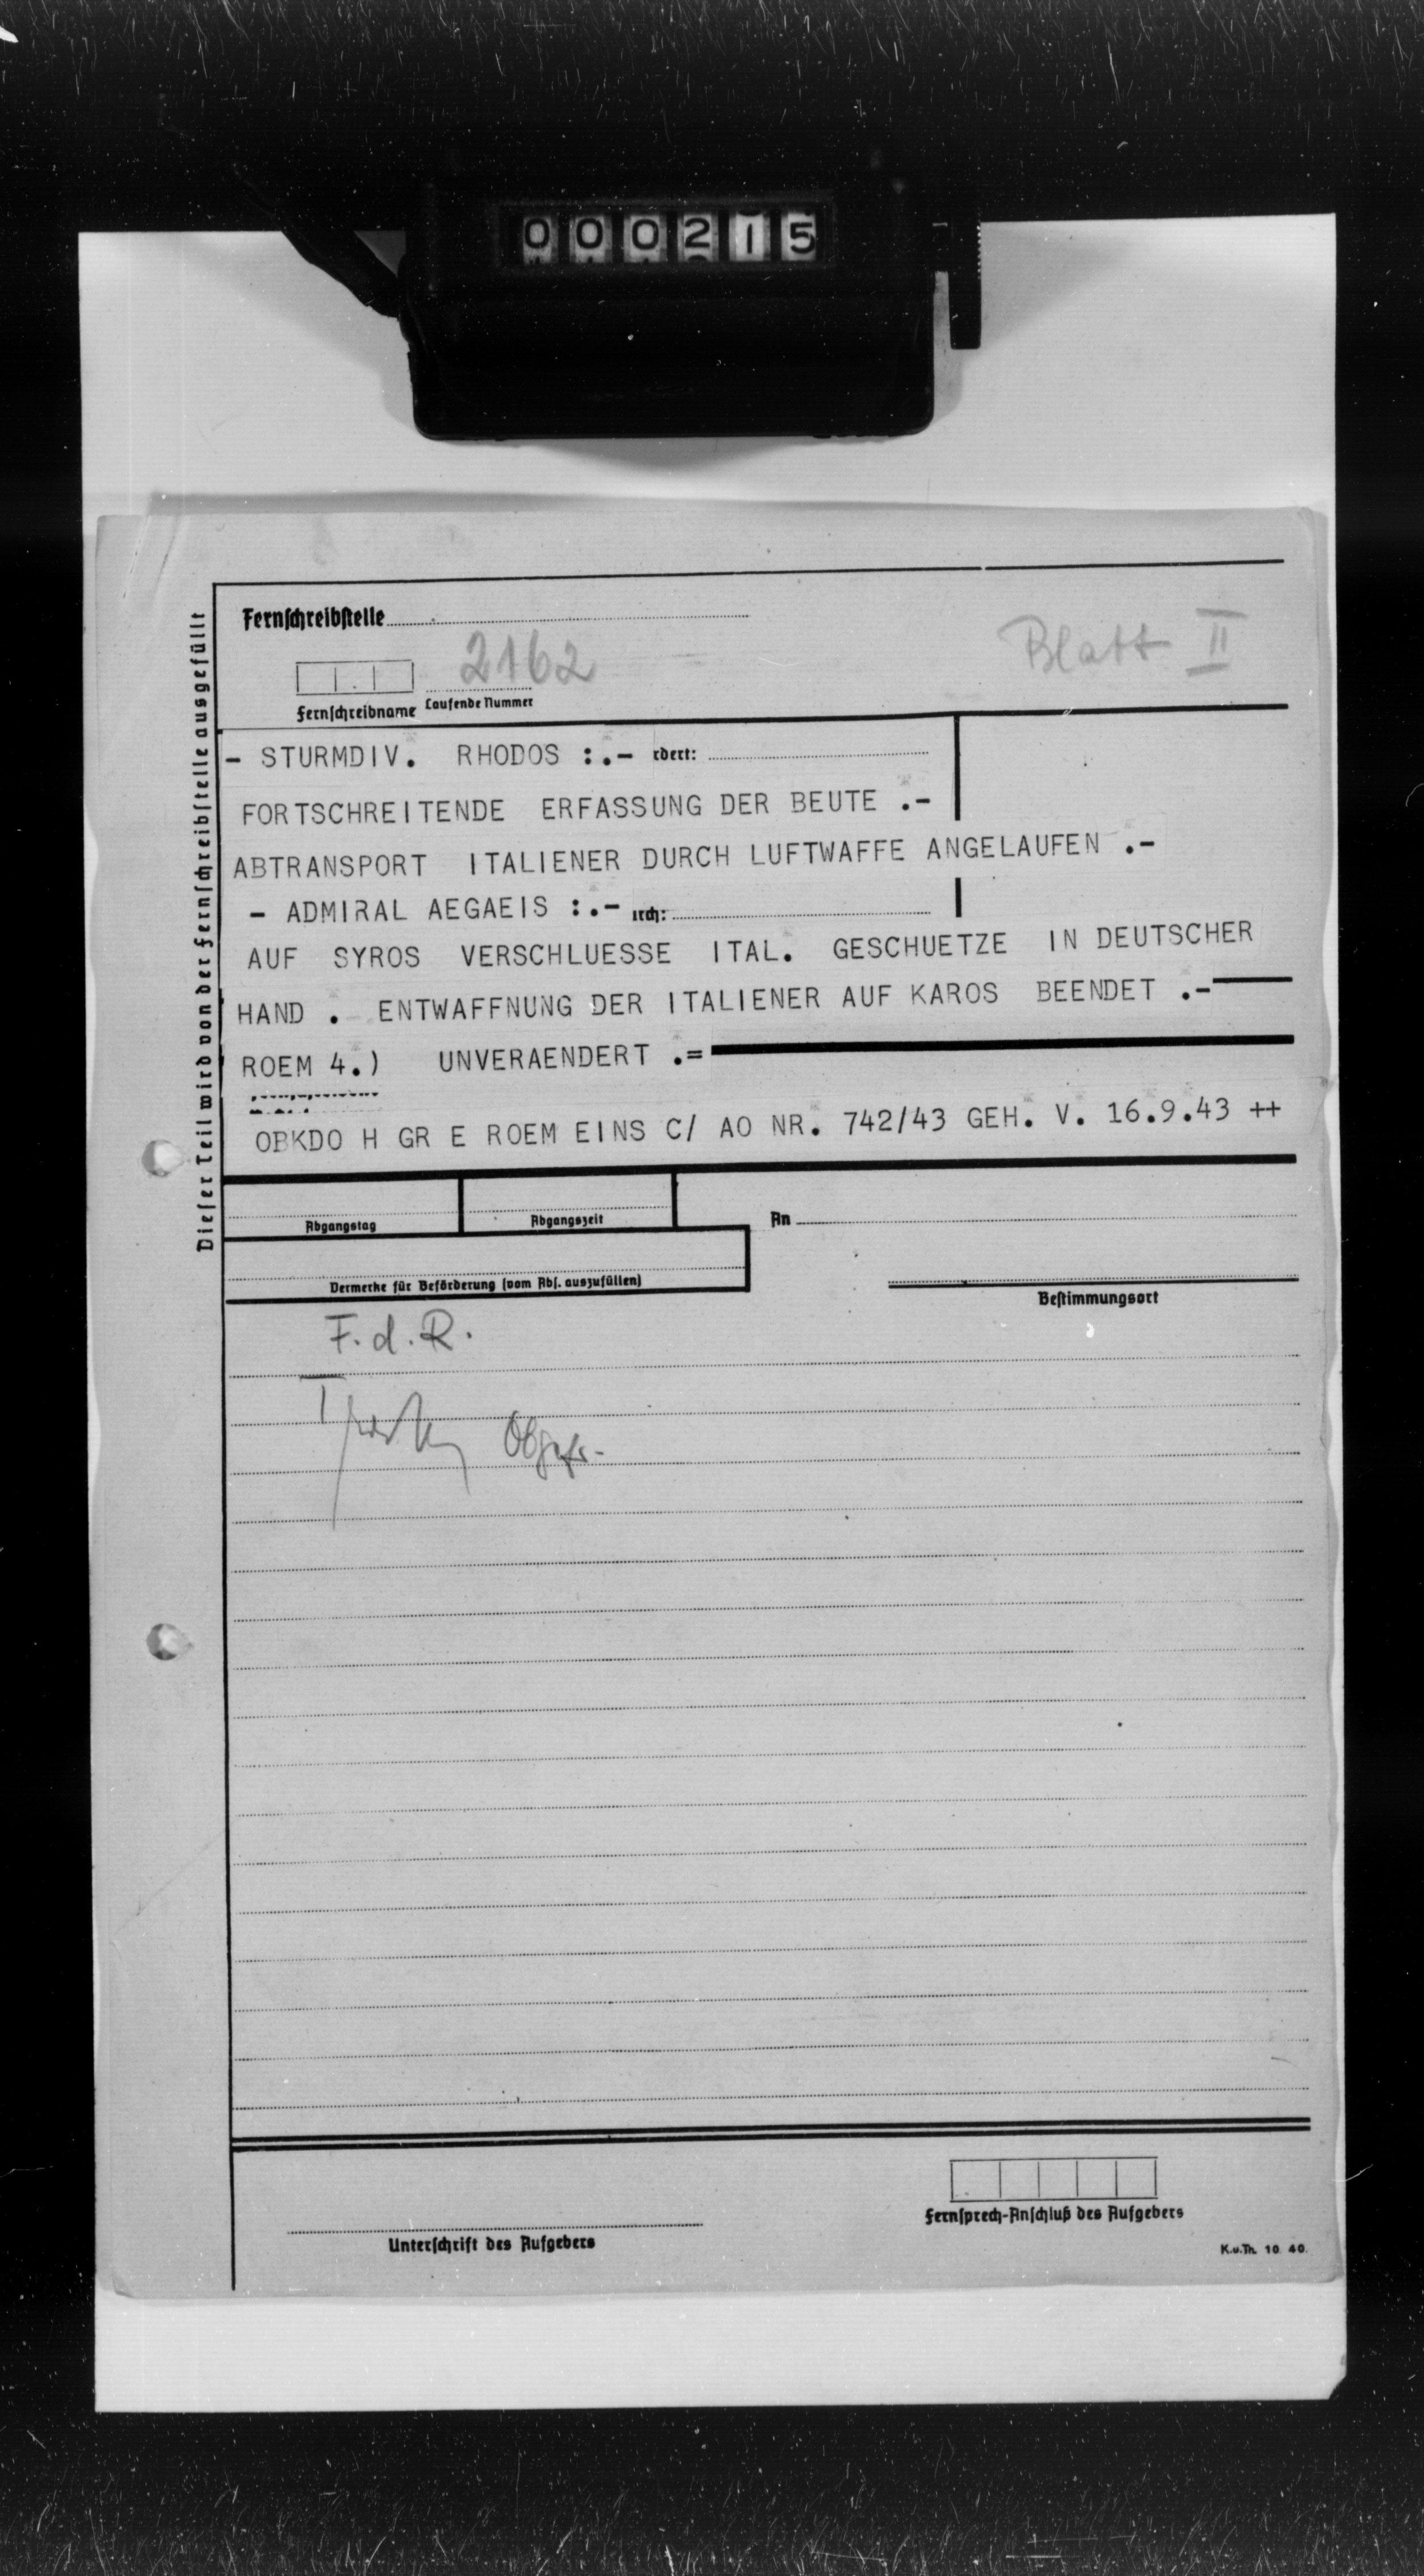 000215
Dieser Teil wird von der Fernschreibstelle ausgefüllt
Fernschreibstelle
2162
Blatt II
Fernschreibname Laufende Nummer
- STURMDIV. RHODOS :.- rdert:
FORTSCHREITENDE ERFASSUNG DER BEUTE .-
ABTRANSPORT ITALIENER DURCH LUFTWAFFE ANGELAUFEN .-
- ADMIRAL AEGAEIS :.- urch:
AUF SYROS VERSCHLUESSE ITAL. GESCHUETZE IN DEUTSCHER
HAND . ENTWAFFNUNG DER ITALIENER AUF KAROS BEENDET .-
ROEM 4.) UNVERAENDERT .=
OBKDO H GR E ROEM EINS C/ AO NR. 742/43 GEH. V. 16.9.43 ++
Abgangstag Abgangszeit An
Vermerke für Beförderung (vom Abs. auszufüllen)
Bestimmungsort
F. d. R.
Obgefr.
Fernsprech-Anschluß des Aufgebers
Unterschrift des Aufgebers
K.u.Th. 10. 40.